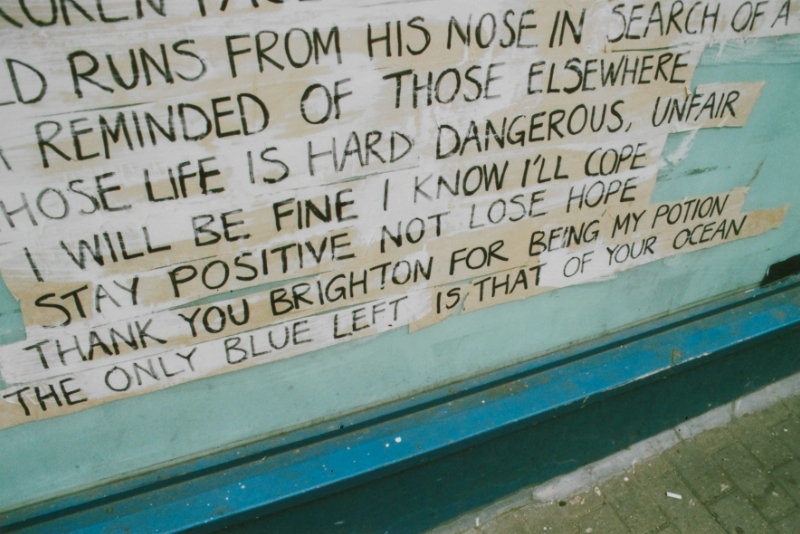 RUNS FROM HIS NOSE IN SEARCH OF A
REMINDED OF THOSE ELSEWHERE
LIFE IS HARD DANGEROUS, UNFAIR
I WILL BE FINE I KNOW I'LL COPE
STAY POSITIVE NOT LOSE HOPE
THANK YOU BRIGHTON FOR BEING MY POTION
THE ONLY BLUE LEFT IS THAT OF YOUR OCEAN